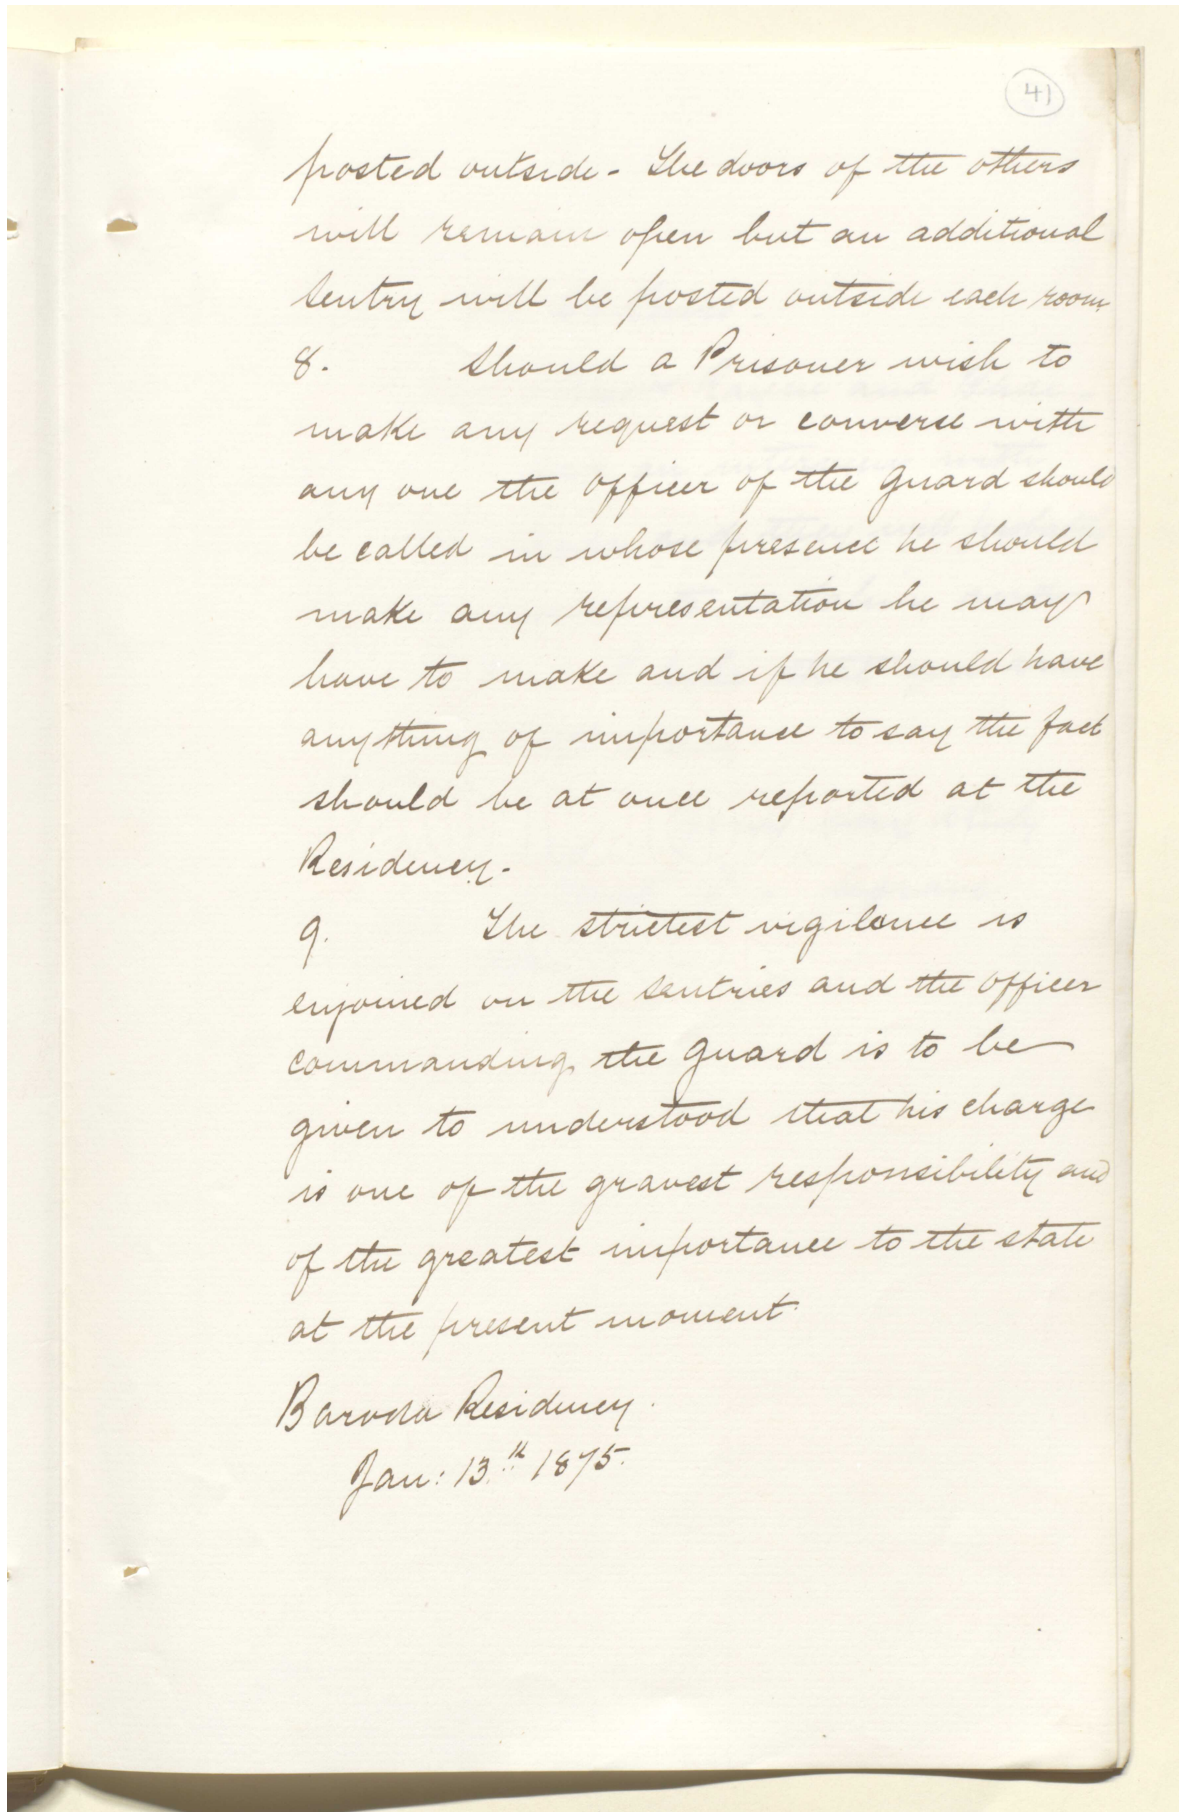 41
posted outside - The doors of the others
will remain open but an additional
Sentry will be posted outside each room
8. Should a Prisoner wish to
make any request or converse with
any one the Officer of the Guard should
be called in whose presence he should
make any representation he may
have to make and if he should have
anything of importance to say the fact
should be at once reported at the
Residency -
9. The strictest vigilance is
enjoined on the Sentries and the Officer
Commanding the Guard is to be
given to understood that his charge
is one of the gravest responsibility and
of the greatest importance to the state
at the present moment.
Baroda Residency.
Jan: 13th 1875.